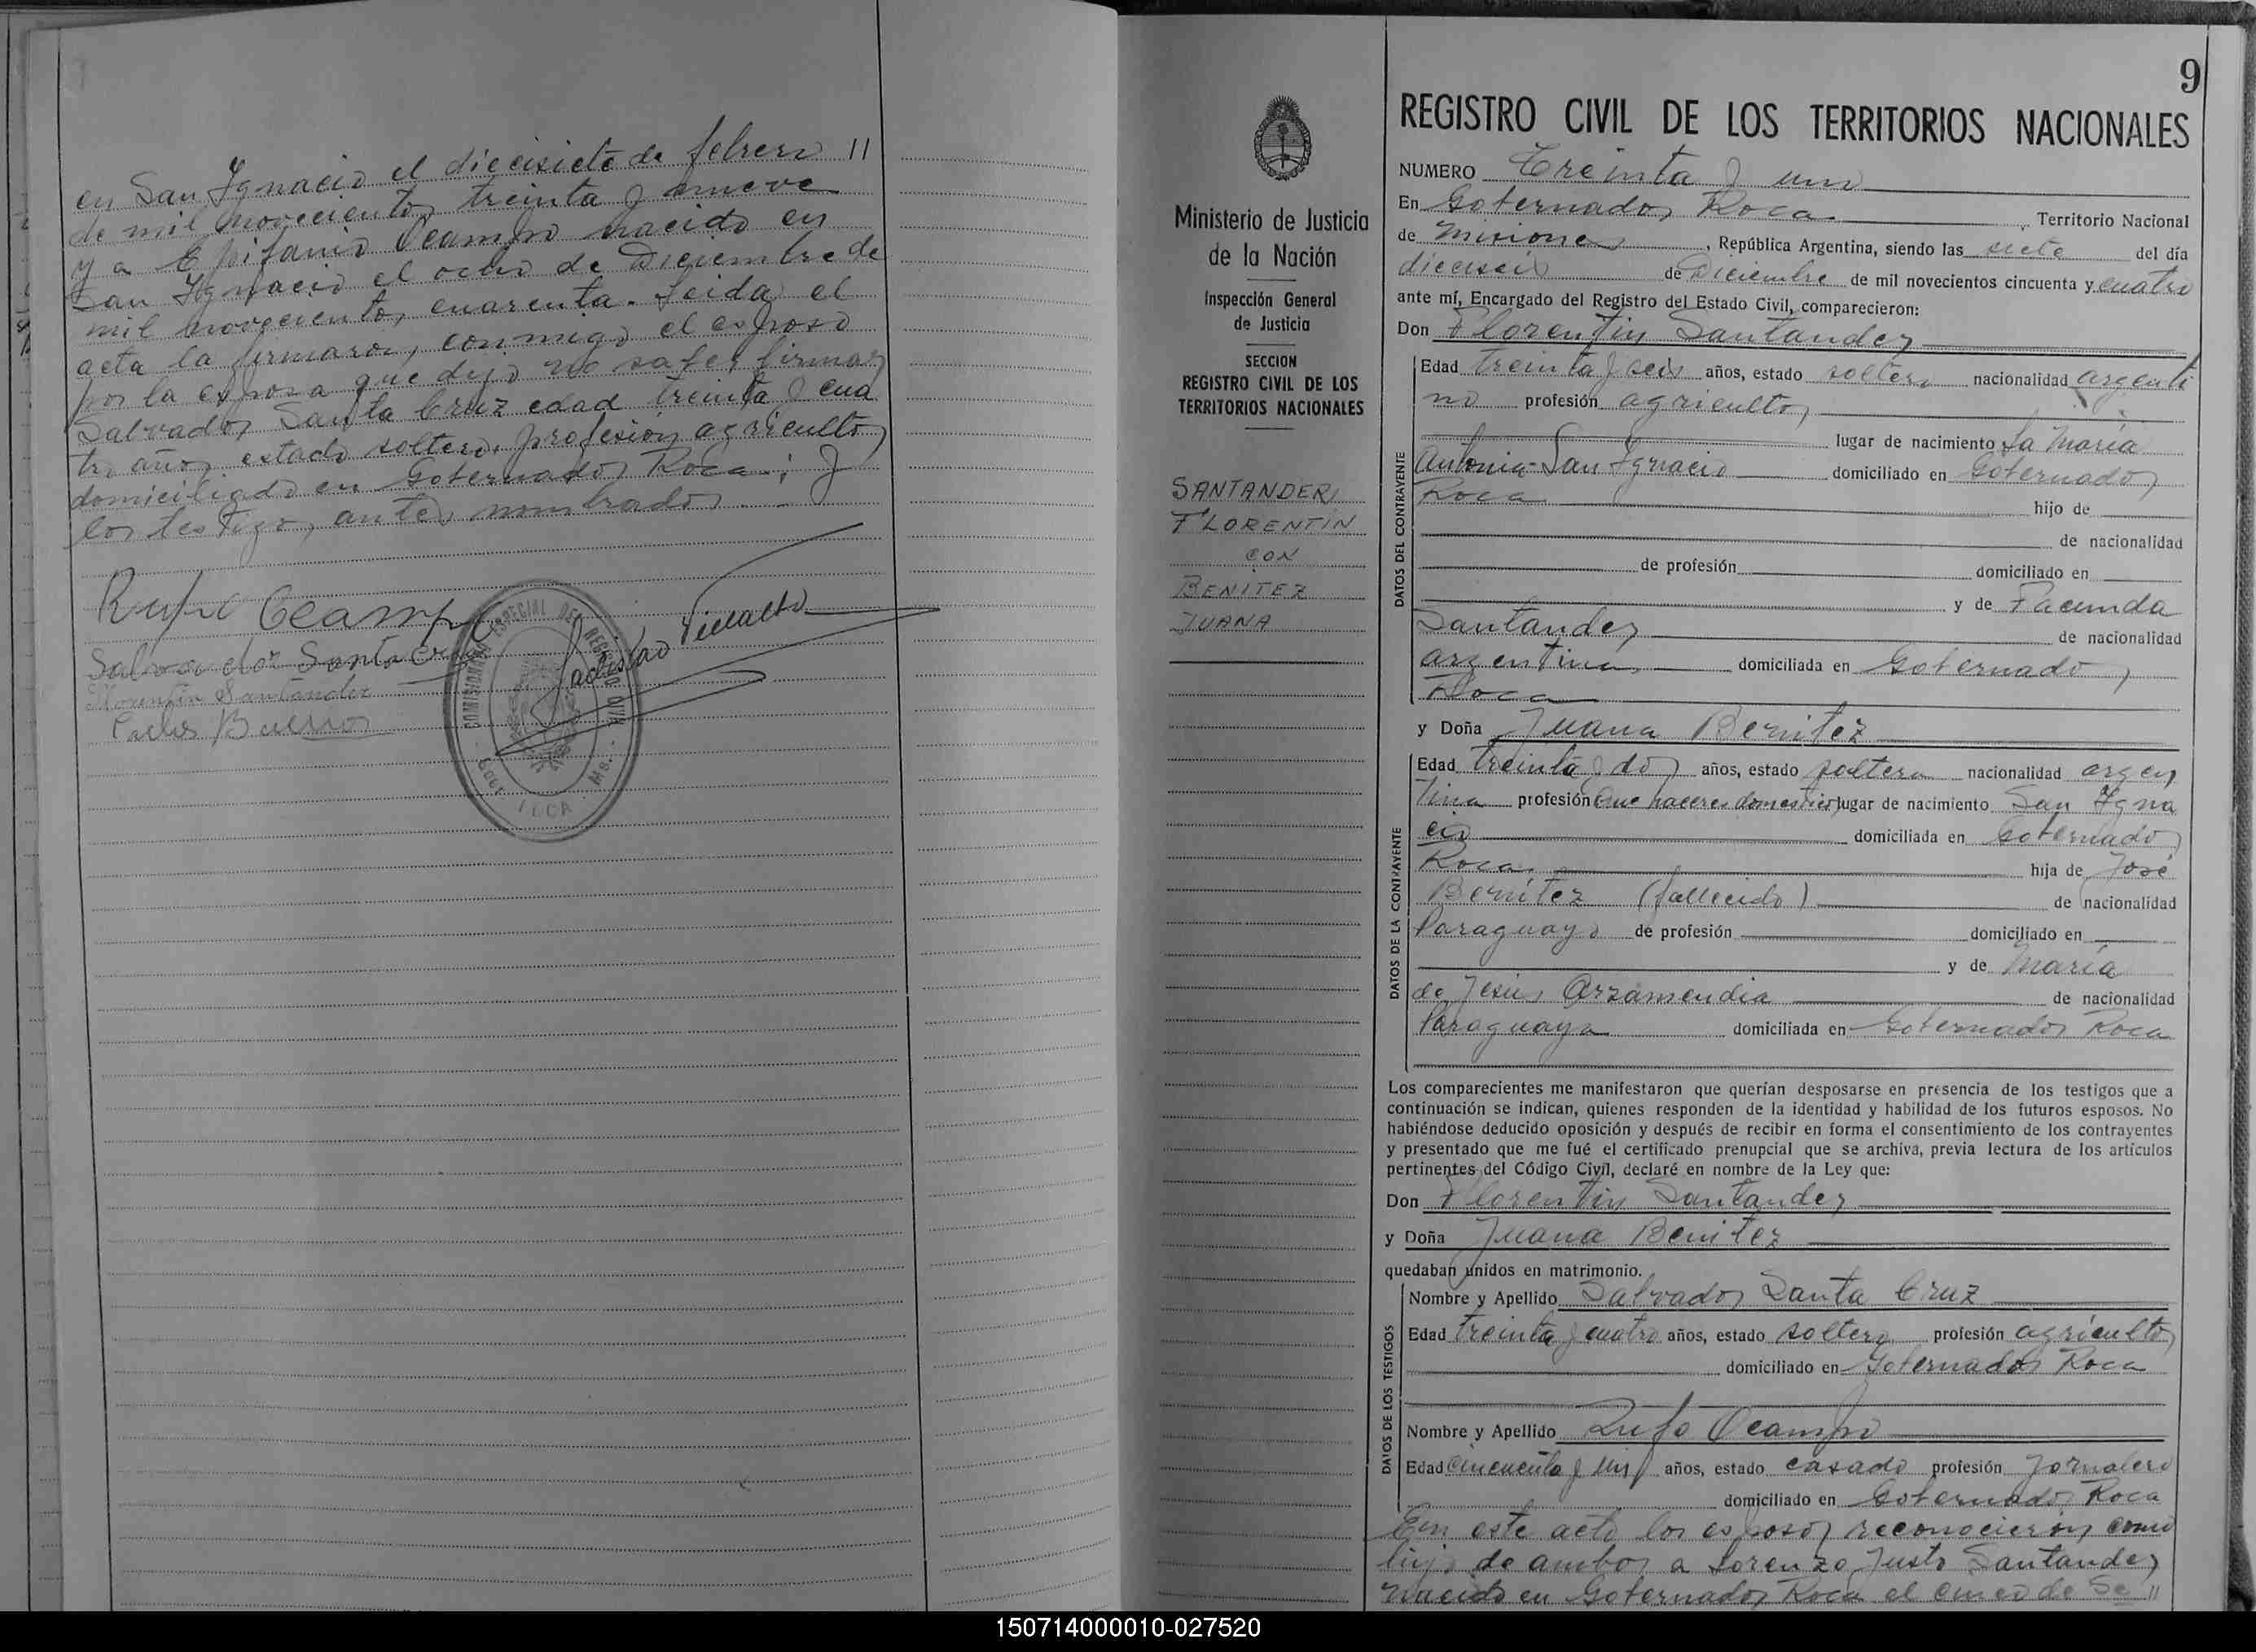 en San Ignacio el diecisiete de febrero //
de mil novecientos treinta y nueve
y a Epifanio Ocampo nacido en
San Ignacio el ocho de Diciembre de
mil novecientos cuarenta. Leida el
acta la firmaron, conmigo el esposo
por la esposa que dijo no saber firmar
Salvador Santa Cruz edad treinta y cua
tro años, estado soltero, profesion agricultor
domiciliado en Gobernador Roca; y
los testigos, antes nombrados
Rufo Ocampo
Salvador Santa Cruz
Florentin Santander
Carlos
COMISIONADO ESPECIAL DEL REGISTRO CIVIL
GOB. ROCA - Ms.
Ladislao Villalba
9
Ministerio de Justicia
de la Nación
Inspección General
de Justicia
SECCION
REGISTRO CIVIL DE LOS
TERRITORIOS NACIONALES
SANTANDER,
FLORENTIN
CON
BENITEZ
JUANA
REGISTRO CIVIL DE LOS TERRITORIOS NACIONALES
NUMERO Treinta y uno
En Gobernador Roca Territorio Nacional
de Misiones, República Argentina, siendo las siete del día
dieciseis de Diciembre de mil novecientos cincuenta y cuatro
ante mí, Encargado del Registro del Estado Civil, comparecieron:
Don Florentin Santander
DATOS DEL CONTRAYENTE
Edad treinta y seis años, estado soltero nacionalidad argenti
no profesión agricultor
lugar de nacimiento La Maria
Antonia-San Ignacio domiciliado en Gobernador
Roca hijo de
de nacionalidad
de profesión domiciliado en
y de Facunda
Santander de nacionalidad
argentina, domiciliada en Gobernador
Roca
y Doña Juana Benitez
DATOS DE LA CONTRAYENTE
Edad treinta y dos años, estado soltera nacionalidad argen
tina profesión Que haceres domesticos lugar de nacimiento San Igna
cio domiciliada en Gobernador
Roca, hija de José
Benitez (fallecido) de nacionalidad
Paraguayo de profesión domiciliado en
y de Maria
de Jesús Arzamendia de nacionalidad
Paraguaya domiciliada en Gobernador Roca
Los comparecientes me manifestaron que querían desposarse en presencia de los testigos que a
continuación se indican, quienes responden de la identidad y habilidad de los futuros esposos. No
habiéndose deducido oposición y después de recibir en forma el consentimiento de los contrayentes
y presentado que me fué el certificado prenupcial que se archiva, previa lectura de los artículos
pertinentes del Código Civil, declaré en nombre de la Ley que:
Don Florentin Santander
y Doña Juana Benitez
quedaban unidos en matrimonio.
DATOS DE LOS TESTIGOS
Nombre y Apellido Salvador Santa Cruz
Edad treinta y cuatro años, estado soltero profesión agricultor
domiciliado en Gobernador Roca
Nombre y Apellido Rufo Ocampo
Edad cincuenta y un años, estado casado profesión Jornalero
domiciliado en Gobernador Roca
En este acto los esposos reconocieron como
hijo de ambos a Lorenzo Justo Santander
nacido en Gobernador Roca el cinco de Se //
150714000010-027520